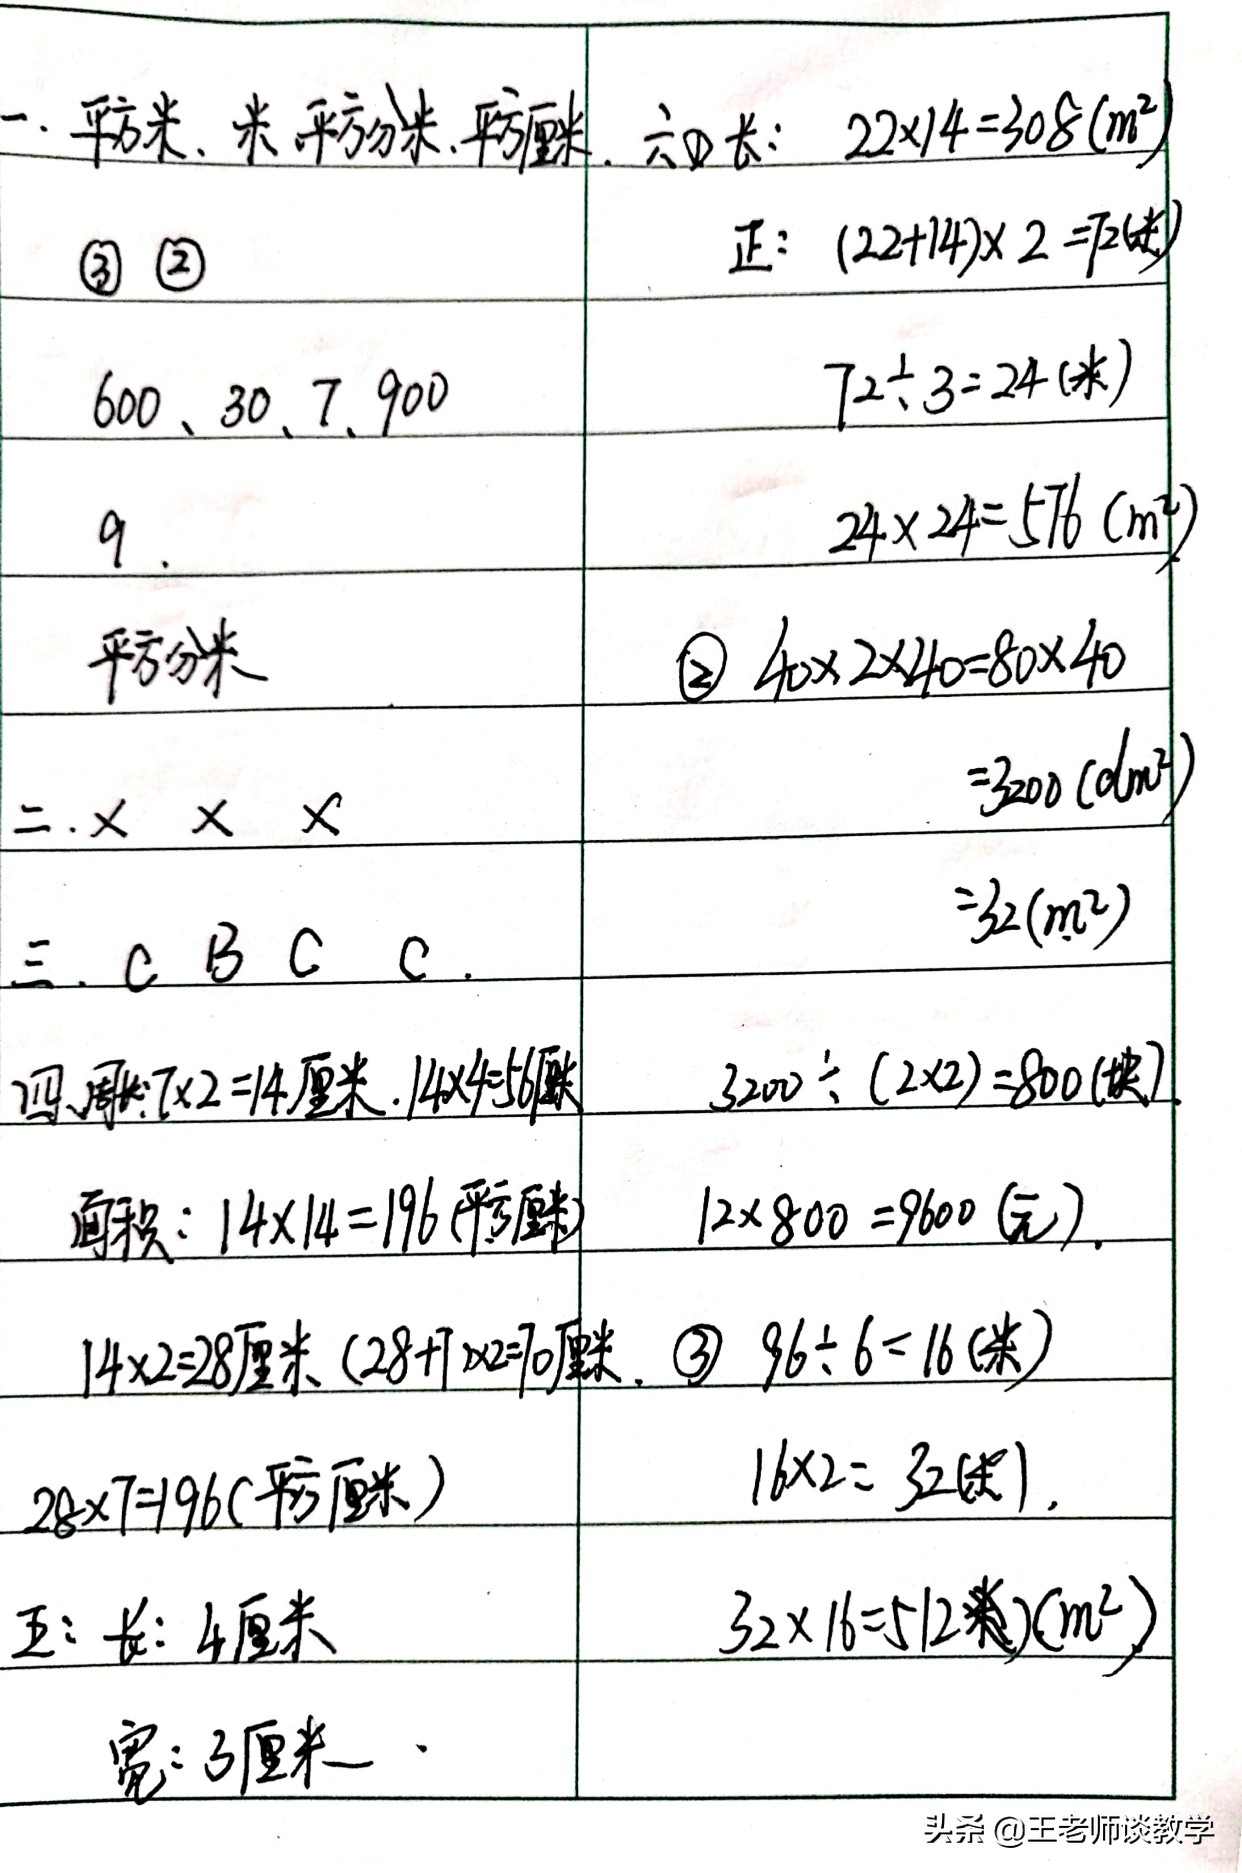 一. 平方米、米、平方分米、平方厘米.
③ ②
600、30、7、900
9.
平方分米
二. × × ×
三. C B C C.
四、周长:7×2=14厘米.14×4=56厘米
面积:14×14=196(平方厘米)
14×2=28厘米、(28+7)×2=70厘米.
28×7=196(平方厘米)
五:长:4厘米
宽:3厘米.
六① 长: 22×14=308(m²)
正: (22+14)×2=72(米)
72÷3=24(米)
24×24=576(m²)
② 40×2×40=80×40
=3200(dm²)
=32(m²)
3200÷(2×2)=800(块).
12×800=9600(元).
③ 96÷6=16(米)
16×2=32(米).
32×16=512(m²)
头条 @王老师谈教学